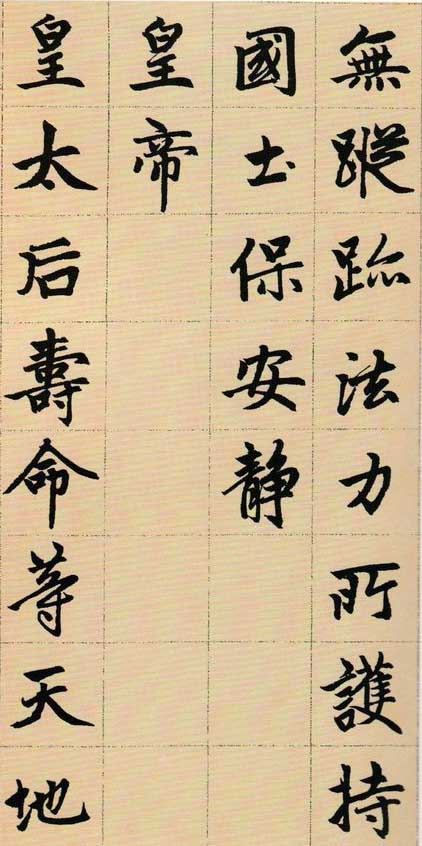 無蹤跡法力所護持
國土保安靜
皇帝
皇太后壽命等天地